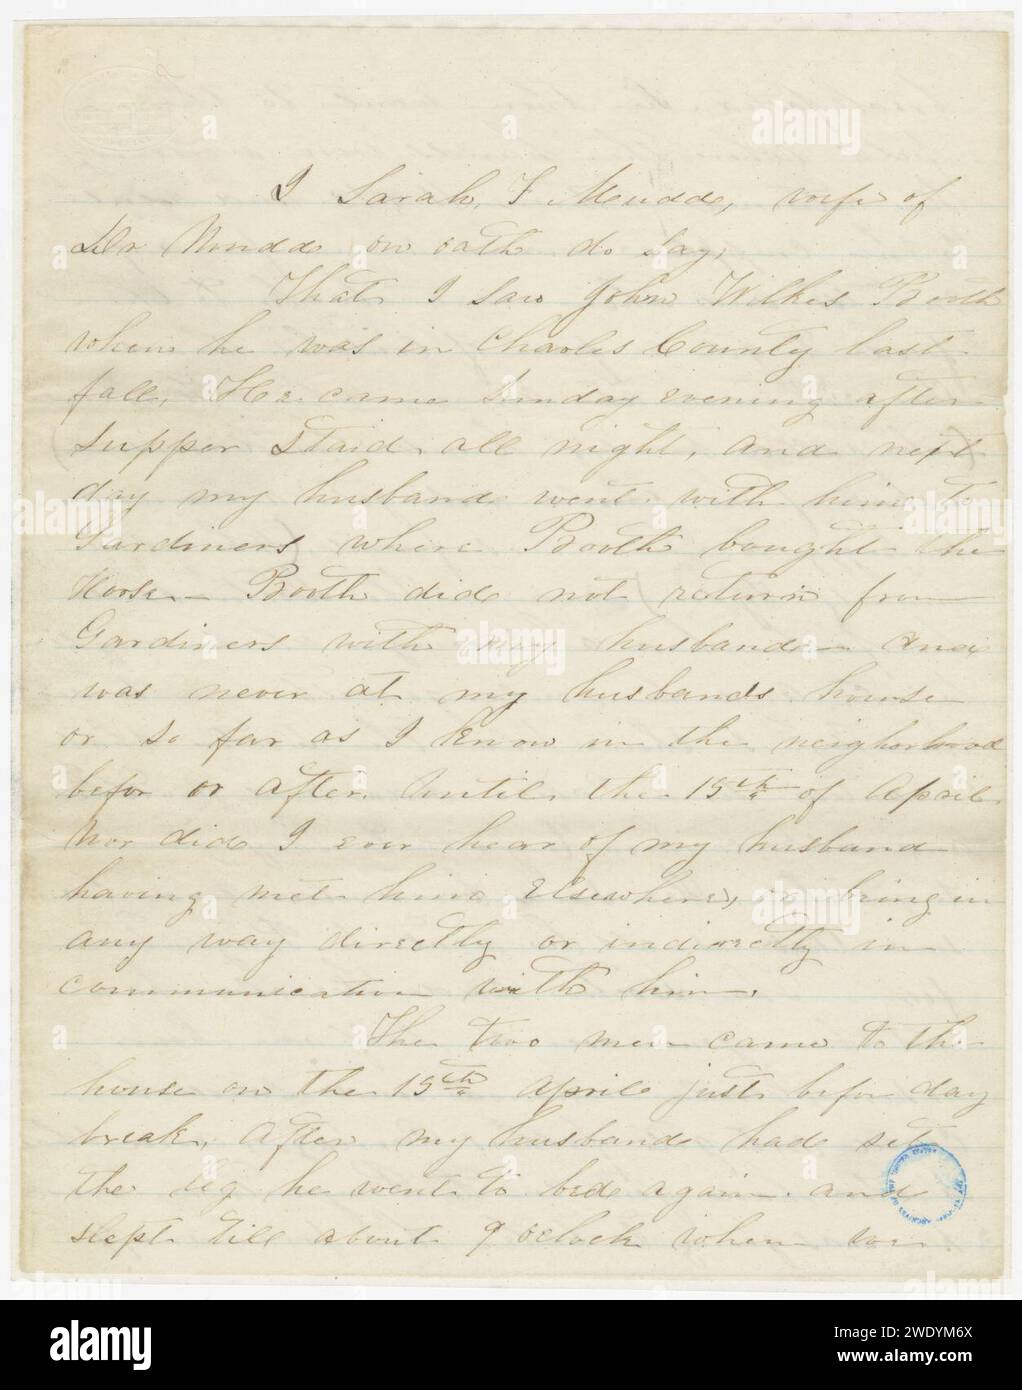 I Sarah, F Meudde, wife of
Dr Mudd on oath do say;
That I saw John Wilkes Booth
when he was in Charles County last
fall, He came Sunday evening after
supper staid all night, and next
day my husband went with him to
Gardiners where Booth bought the
Horse - Booth did not return from
Gardiners with my husband - and
was never at my husbands house
or so far as I know in the neighorhood
befor or after until the 15th of April
Nor did I ever hear of my husband
having met him Elsewhere, or being in
any way directly or indirectly in
communication with him.
The two men came to the
house on the 15th April just befor day
break, After my husband had set
the leg he went to bed again and
slept till about 9 oclock when we
alamy
Image ID: 2WDYM6X
www.alamy.com